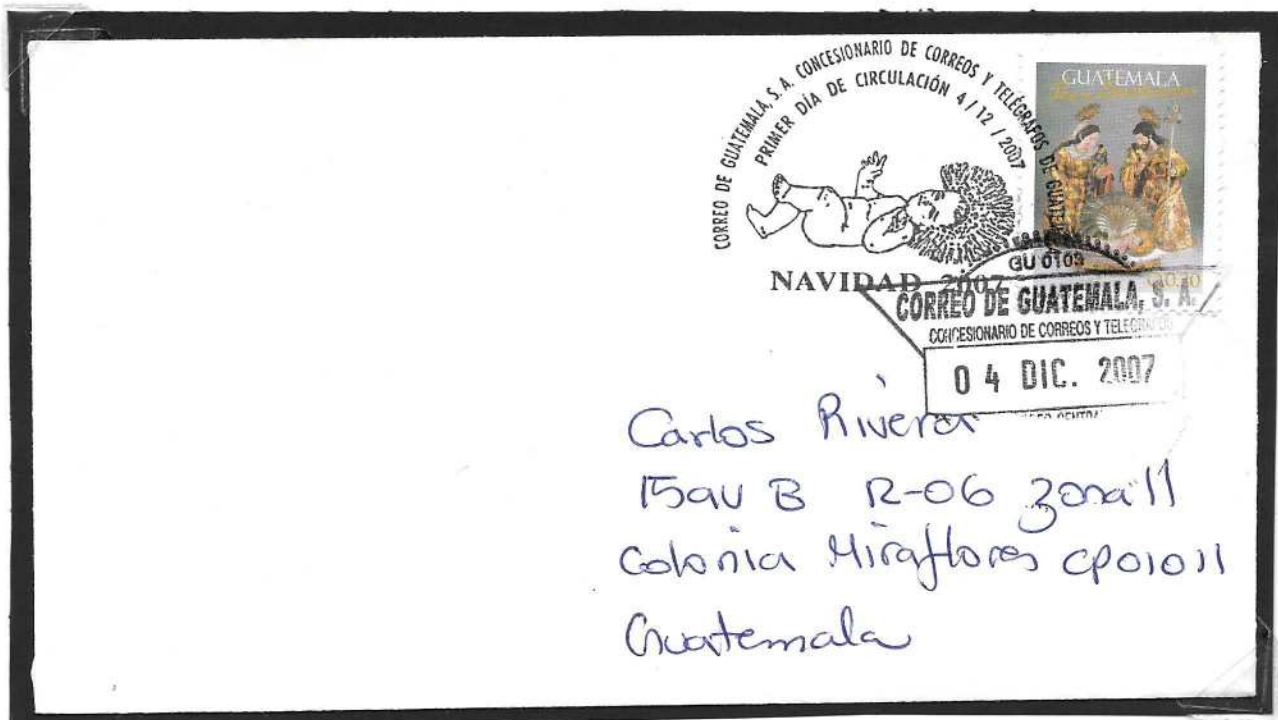 CORREO DE GUATEMALA, S. A. CONCESIONARIO DE CORREOS Y TELÉGRAFOS DE
PRIMER DÍA DE CIRCULACIÓN 4/12/2007
NAVIDAD 2007
GUATEMALA
GU 0103
CORREO DE GUATEMALA, S. A.
CONCESIONARIO DE CORREOS Y
04 DIC. 2007
Carlos Rivera
15av B R-06 zona 11
Colonia Miraflores CP01011
Guatemala